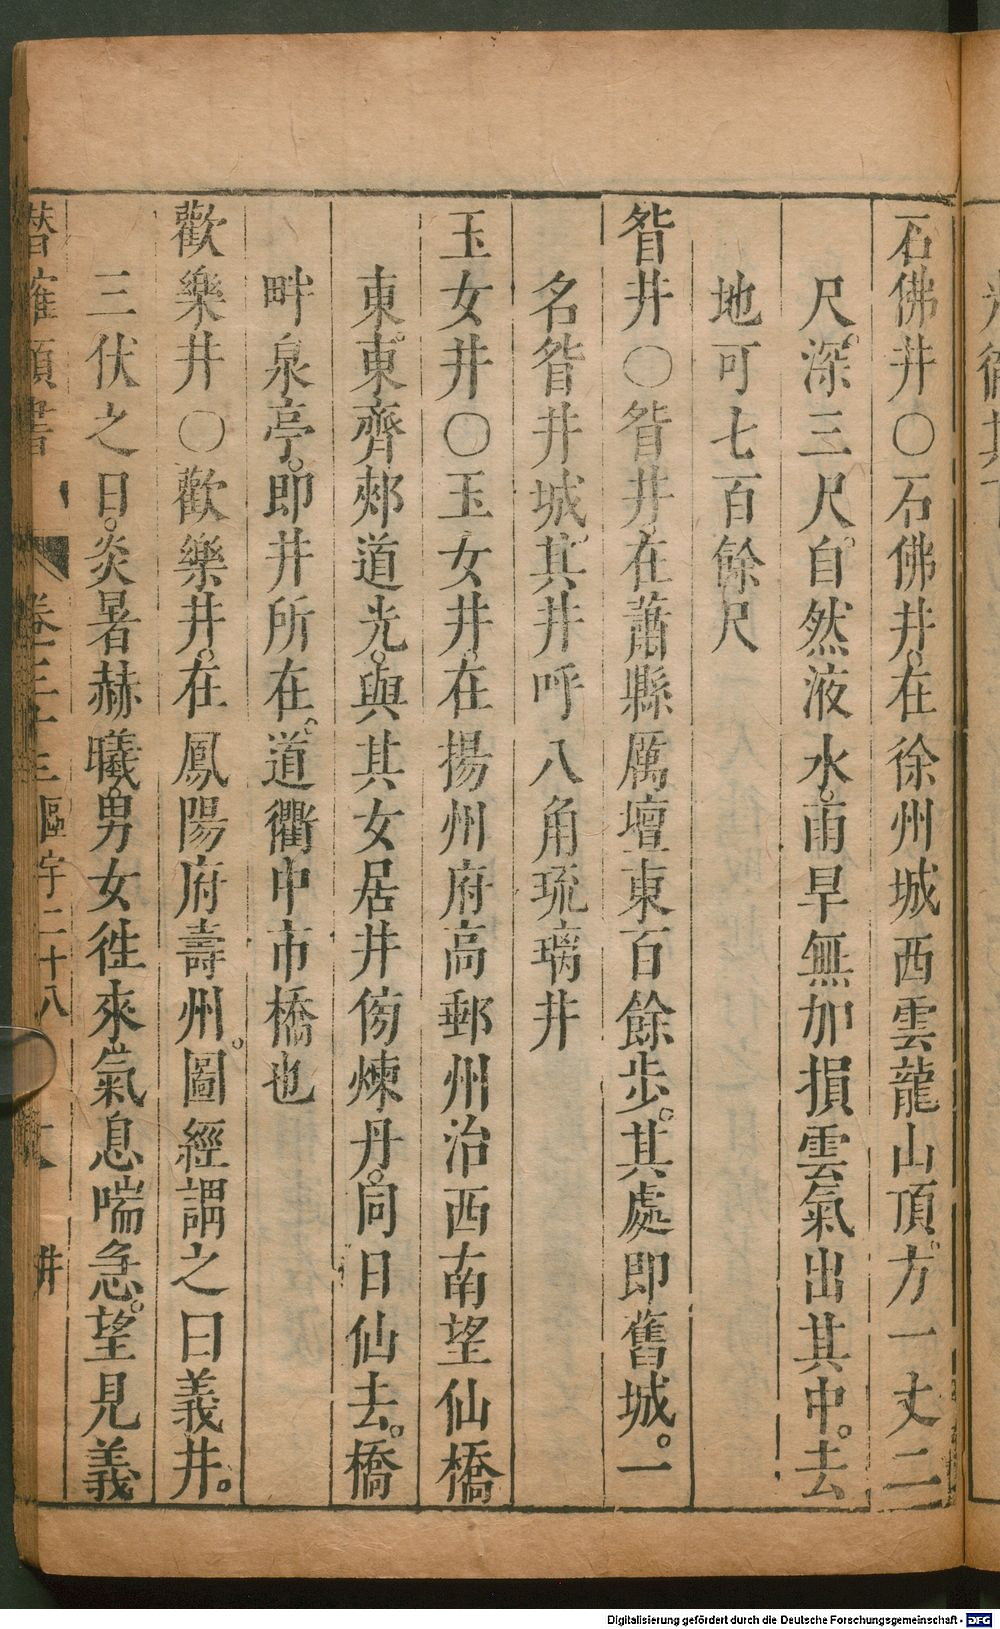 石佛井○石佛井。在徐州城西雲龍山頂。方一丈二
尺。深三尺。自然液水。雨旱無加損雲氣出其中。去
地可七百餘尺
眢井○眢井。在蕭縣厲壇東百餘步。其處即舊城。一
名眢井城。其井呼八角琉璃井
玉女井○玉女井。在揚州府高郵州治西南望仙橋
東。東齊郟道光。與其女居井傍煉丹。同日仙去。橋
畔泉亭。即井所在。道衢中市橋也
歡樂井○歡樂井。在鳳陽府壽州。圖經謂之曰義井。
三伏之日。炎暑赫曦。男女徃來。氣息喘急。望見義
潛確類書 卷三十三 區宇二十八 井
Digitalisierung gefördert durch die Deutsche Forschungsgemeinschaft - DFG